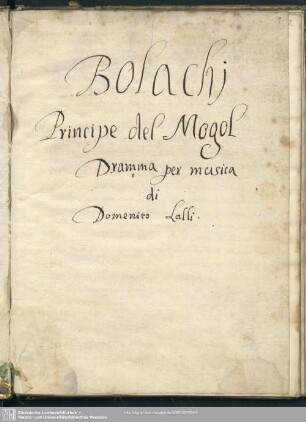 Bolachj
Principe del Mogol
Dramma per musica
di
Domenico Lalli.
Sächsische Landesbibliothek -
Staats- und Universitätsbibliothek Dresden